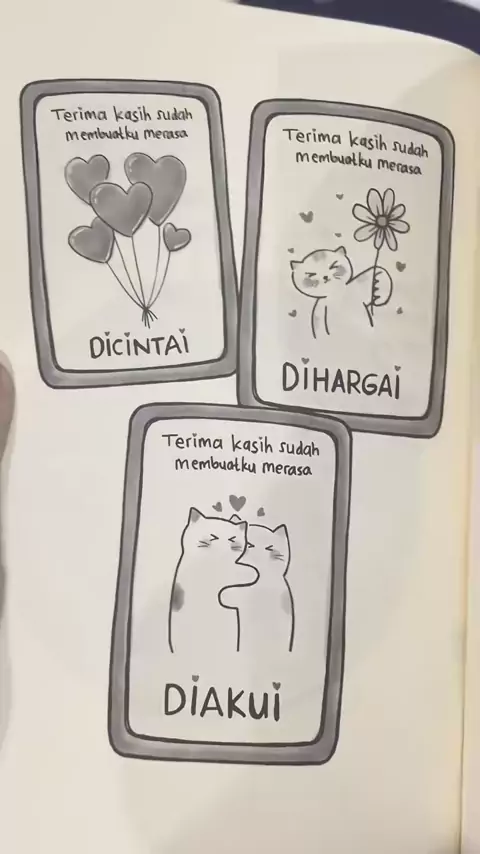 Terima kasih sudah
membuatku merasa
DiCiNTAi
Terima kasih sudah
membuatku merasa
DiHARGAi
Terima kasih sudah
membuatku merasa
DiAKUi